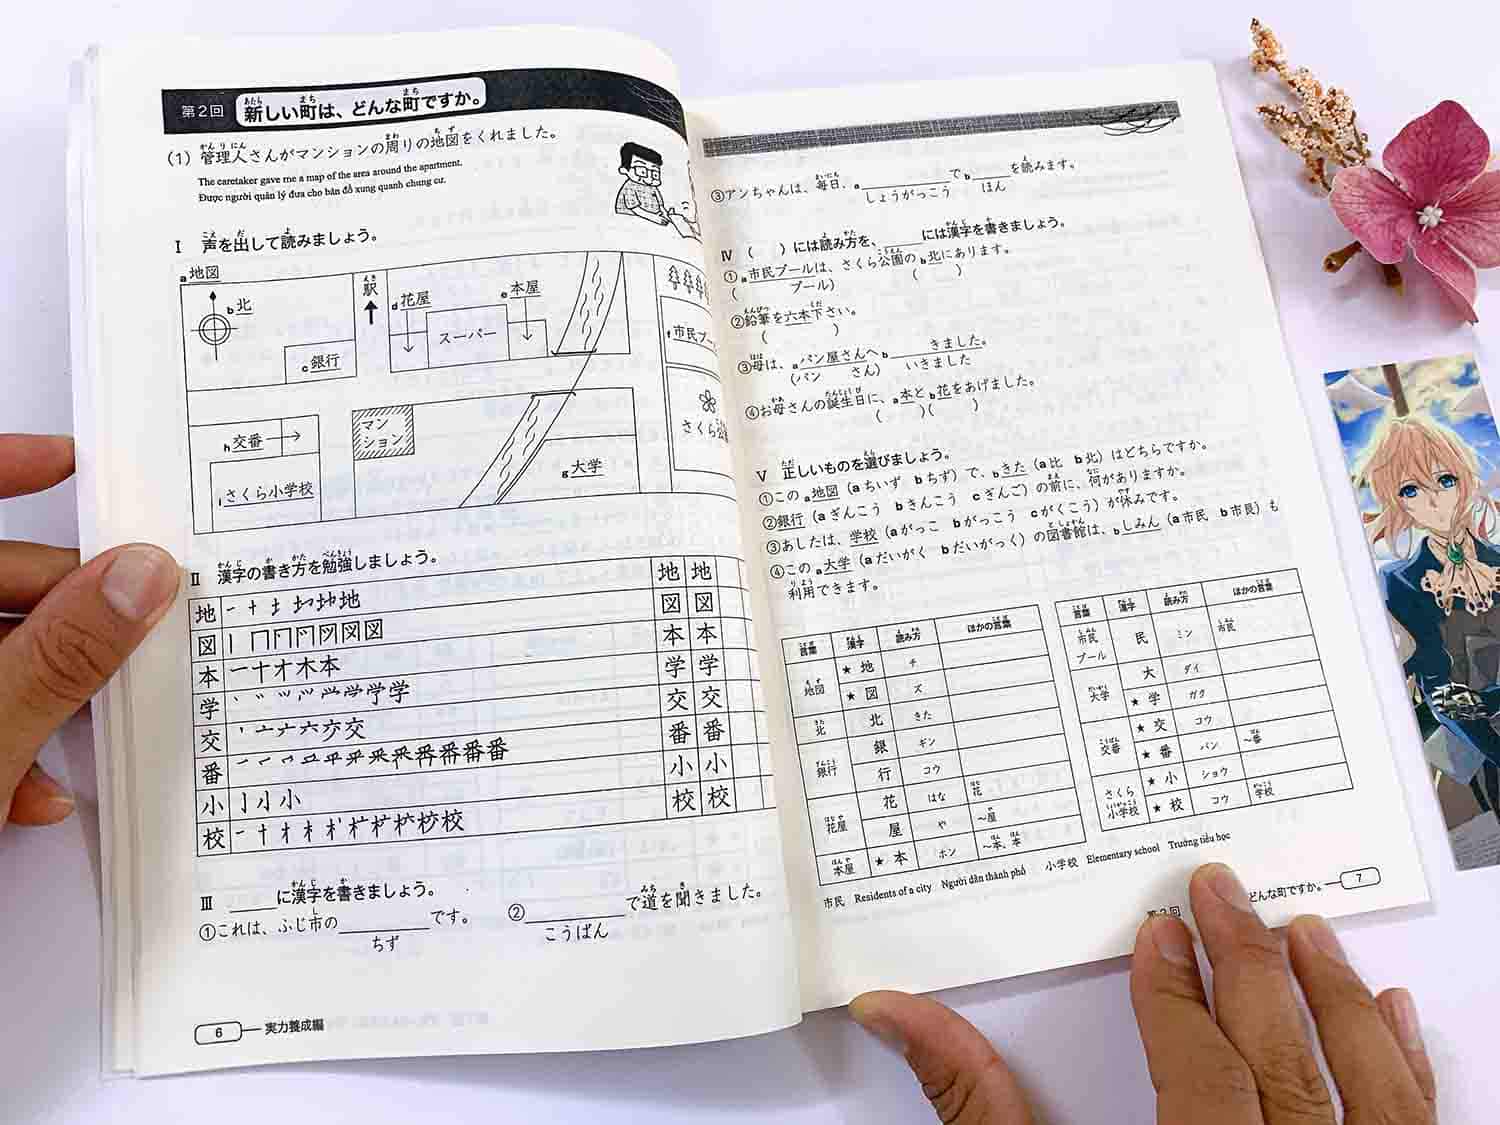 第2回 新しい町は、どんな町ですか。
(1) 管理人さんがマンションの周りの地図をくれました。
The caretaker gave me a map of the area around the apartment.
Được người quản lý đưa cho bản đồ xung quanh chung cư.
Ⅰ 声を出して読みましょう。
a 地図
b 北
c 銀行
駅
d 花屋
スーパー
e 本屋
f 市民プー
さくら公
マンション
g 大学
h 交番
i さくら小学校
Ⅱ 漢字の書き方を勉強しましょう。
地 地 地
図 図 図
本 本 本
学 学 学
交 交 交
番 番 番
小 小 小
校 校 校
Ⅲ ____に漢字を書きましょう。
①これは、ふじ市の________です。 ②________で道を聞きました。
ちず こうばん
6 実力養成編
③アンちゃんは、毎日、a________でb____を読みます。
しょうがっこう ほん
Ⅳ ( )には読み方を、____には漢字を書きましょう。
①a市民プールは、さくら公園のb北にあります。
( プール) ( )
②鉛筆を六本下さい。
( )
③母は、aパン屋さんへb____きました。
(パン さん) いきました
④お母さんの誕生日に、a本とb花をあげました。
( )( )
Ⅴ 正しいものを選びましょう。
①このa地図(aちいず bちず)で、bきた(a比 b北)はどちらですか。
②銀行(aぎんこう bきんこう cぎんご)の前に、何がありますか。
③あしたは、学校(aがっこ bがっこう cがくこう)が休みです。
④このa大学(aだいがく bだいがっく)の図書館は、bしみん(a市民 b市艮)も
利用できます。
言葉 漢字 読み方 ほかの言葉
地図 ★地 チ
★図 ズ
北 北 きた
銀行 銀 ギン
行 コウ
花屋 花 はな 花
屋 や ~屋
本屋 ★本 ホン ~本、本
言葉 漢字 読み方 ほかの言葉
市民プール 民 ミン 市民
大学 大 ダイ
★学 ガク
交番 ★交 コウ
★番 バン ~番
さくら小学校 ★小 ショウ
★校 コウ 学校
市民 Residents of a city Người dân thành phố 小学校 Elementary school Trường tiểu học
第2回 どんな町ですか。 7